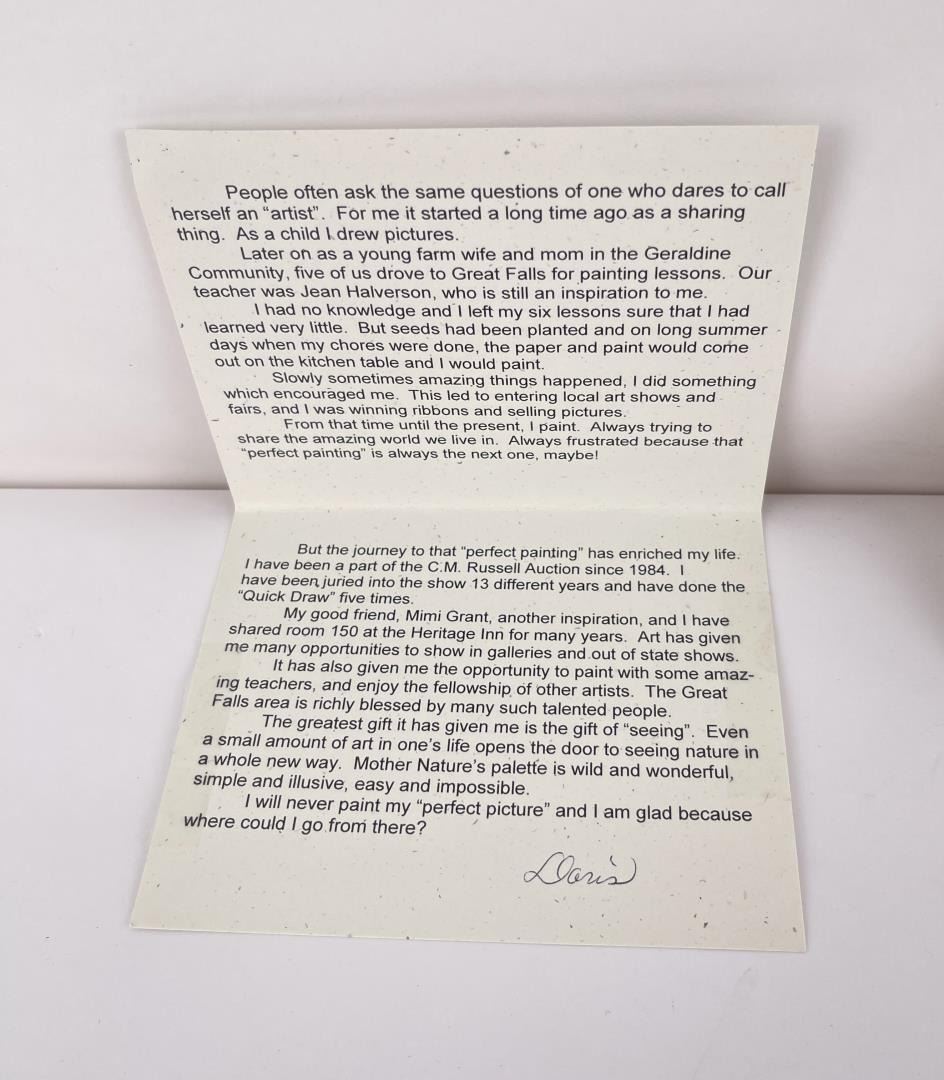 People often ask the same questions of one who dares to call
herself an “artist”. For me it started a long time ago as a sharing
thing. As a child I drew pictures.
Later on as a young farm wife and mom in the Geraldine
Community, five of us drove to Great Falls for painting lessons. Our
teacher was Jean Halverson, who is still an inspiration to me.
I had no knowledge and I left my six lessons sure that I had
learned very little. But seeds had been planted and on long summer
days when my chores were done, the paper and paint would come
out on the kitchen table and I would paint.
Slowly sometimes amazing things happened, I did something
which encouraged me. This led to entering local art shows and
fairs, and I was winning ribbons and selling pictures.
From that time until the present, I paint. Always trying to
share the amazing world we live in. Always frustrated because that
“perfect painting” is always the next one, maybe!
But the journey to that “perfect painting” has enriched my life.
I have been a part of the C.M. Russell Auction since 1984. I
have been juried into the show 13 different years and have done the
“Quick Draw” five times.
My good friend, Mimi Grant, another inspiration, and I have
shared room 150 at the Heritage Inn for many years. Art has given
me many opportunities to show in galleries and out of state shows.
It has also given me the opportunity to paint with some amaz-
ing teachers, and enjoy the fellowship of other artists. The Great
Falls area is richly blessed by many such talented people.
The greatest gift it has given me is the gift of “seeing”. Even
a small amount of art in one’s life opens the door to seeing nature in
a whole new way. Mother Nature’s palette is wild and wonderful,
simple and illusive, easy and impossible.
I will never paint my “perfect picture” and I am glad because
where could I go from there?
Doris